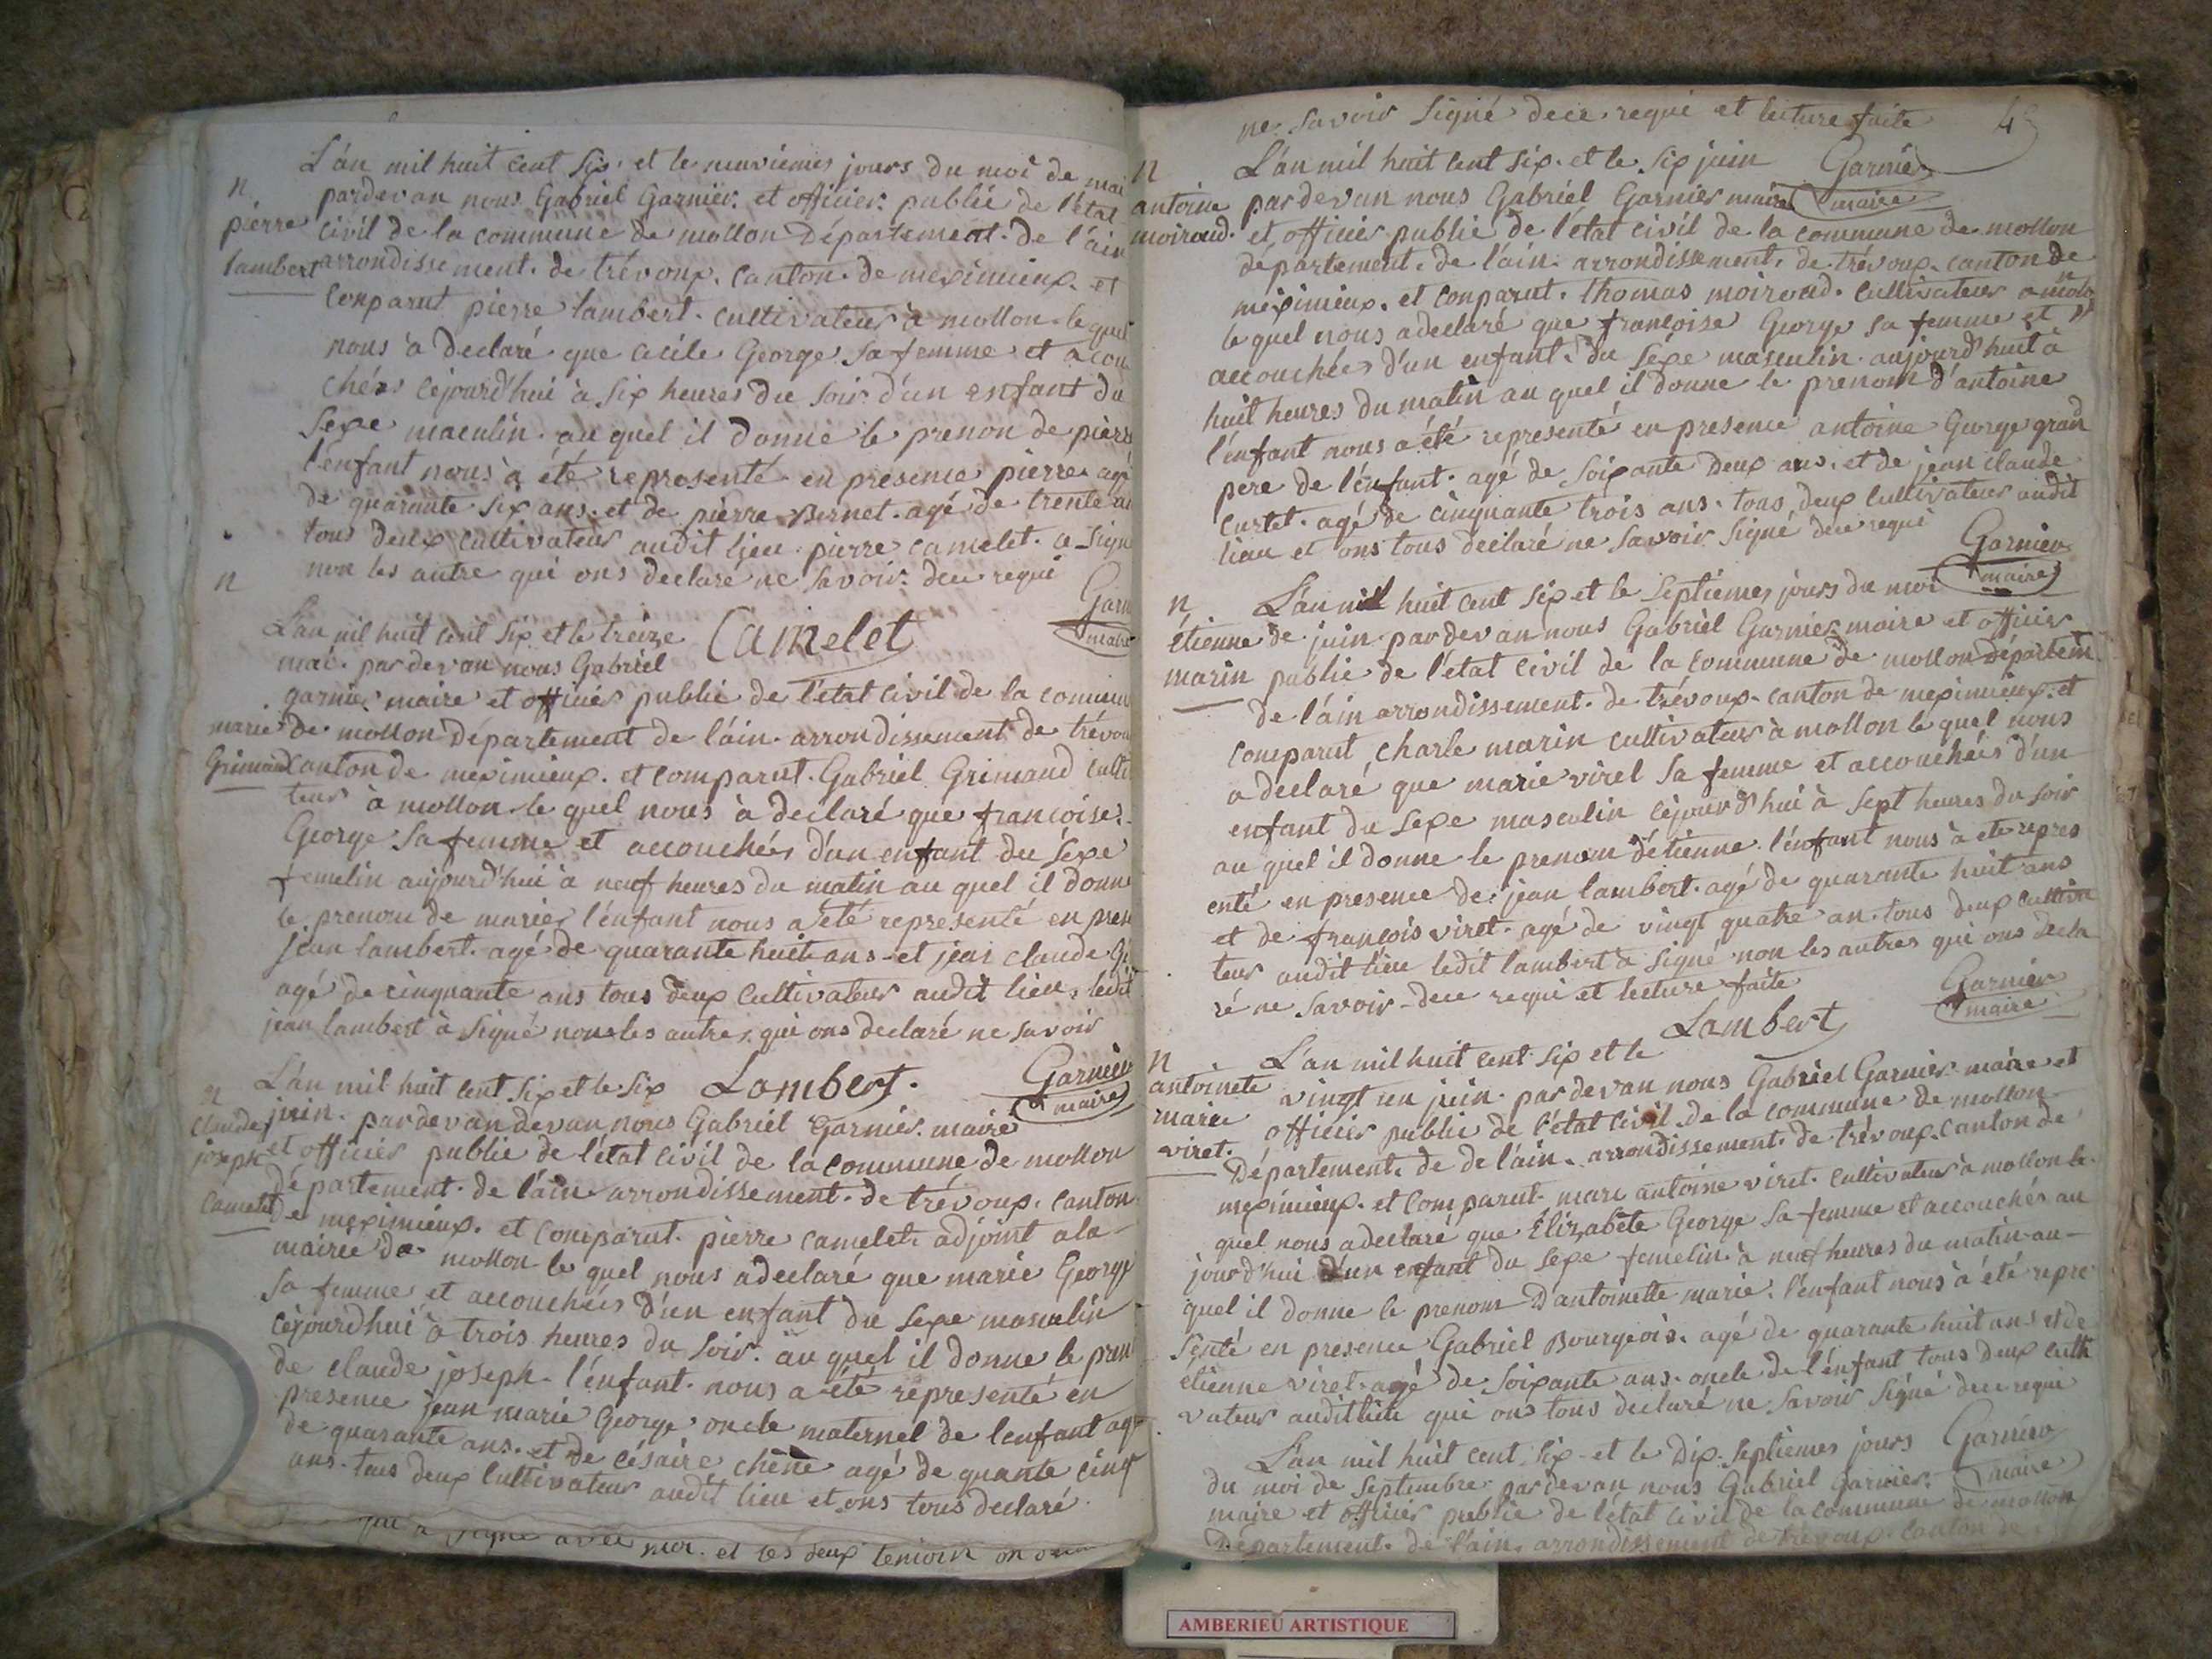 L'an mil huit cent six et le neuviemes jours du moi de mai
n
pardevan nous Gabriel Garnier et officier publié de l'état
pierre
civil de la commune de mollon Département de l'ain
lambert
arrondissement de trévoux canton de meximieux et
conparut pierre lambert cultivateur à mollon le quel
nous à declaré que cecile George sa femme et acou
chéés cejourd'hui à six heures du soir d'un enfant du
sexe maculin au quel il donne le prenon de pierre
l'enfant nous à été representé en presence pierre agé
de quarante six ans et de pierre Bernet agé de trente
tous deux cultivateur audit lieu pierre camelet a sign
non les autre qui ons declaré ne savoir dece requi
Garn
maire
n
L'an mil huit cent six et le treize
Camelet
mai pardevan nous Gabriel
garnier maire et officier public de l'état civil de la commun
marie
de mollon Département de l'ain arrondissement de trévou
Grimaud
canton de meximieux et comparut Gabriel Grimaud culti
teur à mollon le quel nous à declaré que francoise
George sa femme et accouchéés d'un enfant du sexe
femelin aujourd'hui à neuf heures du matin au quel il donne
le prenom de marie l'enfant nous a été representé en pres
jean lambert agé de quarante huit ans et jean claude
agé de cinquante ans tous deux cultivateur audit lieu ledit
jean lambert à signé non les autres qui ons declaré ne savoir
Garnier
maire
Lambert
n
L'an mil huit cent six et le six
claude
juin pardevan devan nous Gabriel Garnier maire
joseph
et officier public de l'état civil de la commune de mollon
camelet
département de l'ain arrondissement de trévoux canton
de meximieux et comparut pierre camelet adjoint a la
mairie de mollon le quel nous a declaré que marie George
sa femme et accouchéés d'un enfant du sexe masculin
cejourdhui à trois heures du soir au quel il donne le pren
de claude joseph l'enfant nous a été representé en
presence jean marie George oncle maternel de lenfant agé
de quarante ans et de césaire chêne agé de quante cinq
ans tous deux cultivateur audit lieu et ons tous declaré
signé avec moi et les deux temoin on
ne savoir signé dece requi et lecture faite
Garnier
maire
n
L'an mil huit cent six et le six juin
antoine
pardevan nous Gabriél Garnier maire
moiroud
et officier public de l'état civil de la commune de mollon
département de l'ain arrondissement de trévoux canton de
meximieux et conparut thomas moiroud cultivateur a mollo
le quel nous a declaré que françoise George sa femme et
accouchéés d'un enfant du sexe masculin aujourd'huit à
huit heures du matin au quel il donne le prenom d'antoine
l'enfant nous a été representé en presence antoine George gran
pere de l'enfant agé de soixante deux ans et de jean claude
curtet agé de cinquante trois ans tous deux cultivateur audit
lieu et ons tous declaré ne savoir signé dece requi
Garnier
maire
n
L'an mil huit cent six et le septiemes jours du moi
étienne
de juin pardevan nous Gabriel Garnier maire et officier
marin
public de l'état civil de la commune de mollon départem
de l'ain arrondissement de trévoux canton de meximieux et
comparut charle marin cultivateur à mollon le quel nous
a declaré que marie viret sa femme et accouchéés d'un
enfant du sexe masculin cejourd'hui à sept heures du soir
au quel il donne le prenom d'étienne l'enfant nous à été repres
enté en presence de jean lambert agé de quarante huit ans
et de françois viret agé de vingt quatre an tous deux cultiva
teur audit lieu ledit lambert à signé non les autres qui ons decla
ré ne savoir dece requi et lecture faite
Garnier
maire
Lambert
n
L'an mil huit cent six et le
antoinete
vingt un juin pardevan nous Gabriel Garnier maire et
marie
officier public de l'état civil de la commune de mollon
viret
Département de de l'ain arrondissement de trévoux canton de
meximieux et comparut marc antoine viret cultivateur à mollon le
quel nous a declaré que Elizabete George sa femme et accouchés au
jourd'hui d'un enfant du sexe femelin à neuf heures du matin au
quel il donne le prenom d'antoinette marie l'enfant nous à été repre
senté en presence Gabriel Bourgeois agé de quarante huit ans et de
étienne viret agé de soixante ans oncle de l'enfant tous deux culti
vateur audit lieu qui ons tous declaré ne savoir signé dece requi
Garnier
maire
L'an mil huit cent six et le Dix septiemes jours
du moi de septembre pardevan nous Gabriel Garnier
maire et officier public de l'état civil de la commune de mollon
Département de l'ain arrondissement de trévoux canton de
AMBERIEU ARTISTIQUE